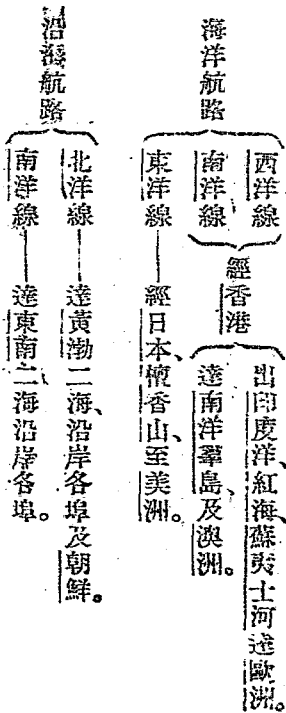 海洋航路
西洋線
南洋線
經香港
出印度洋、紅海、蘇彝士河達歐洲。
達南洋羣島、及澳洲。
東洋線——經日本、檀香山、至美洲。
沿海航路
北洋線——達黃渤二海、沿岸各埠及朝鮮。
南洋線——達東南二海沿岸各埠。